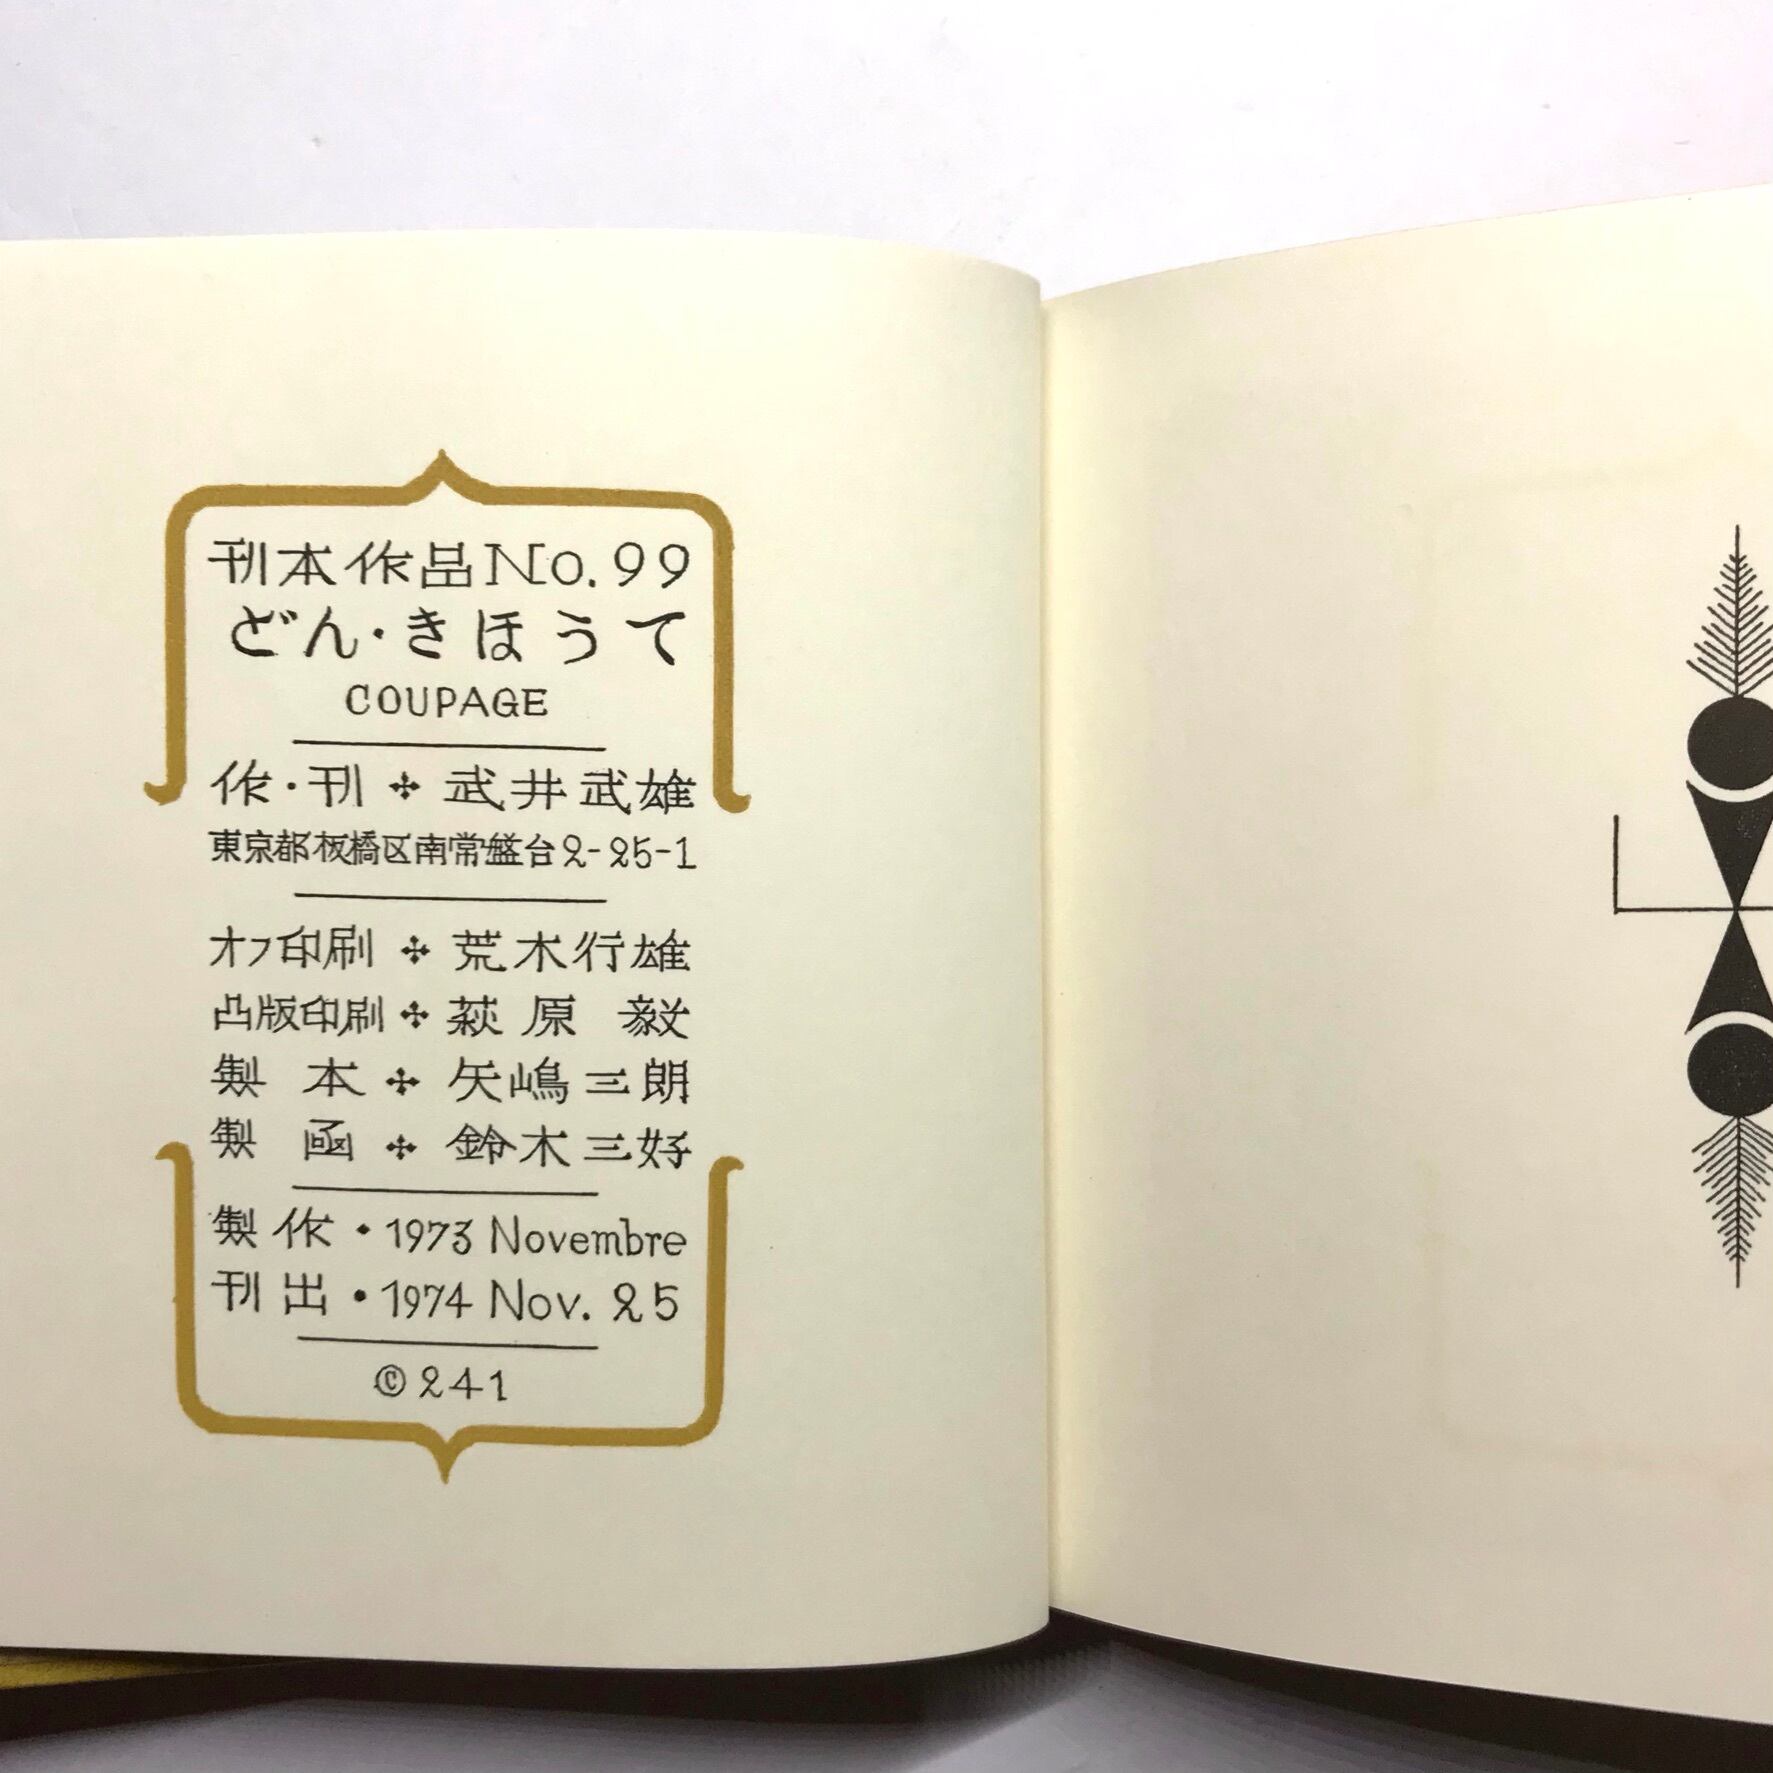 刊本作品No.99
どん・きほうて
COUPAGE
作・刊✣武井武雄
東京都板橋区南常盤台2-25-1
オフ印刷✣荒木行雄
凸版印刷✣萩原 毅
製本✣矢嶋三朗
製函✣鈴木三好
製作・1973 Novembre
刊出・1974 Nov. 25
©241